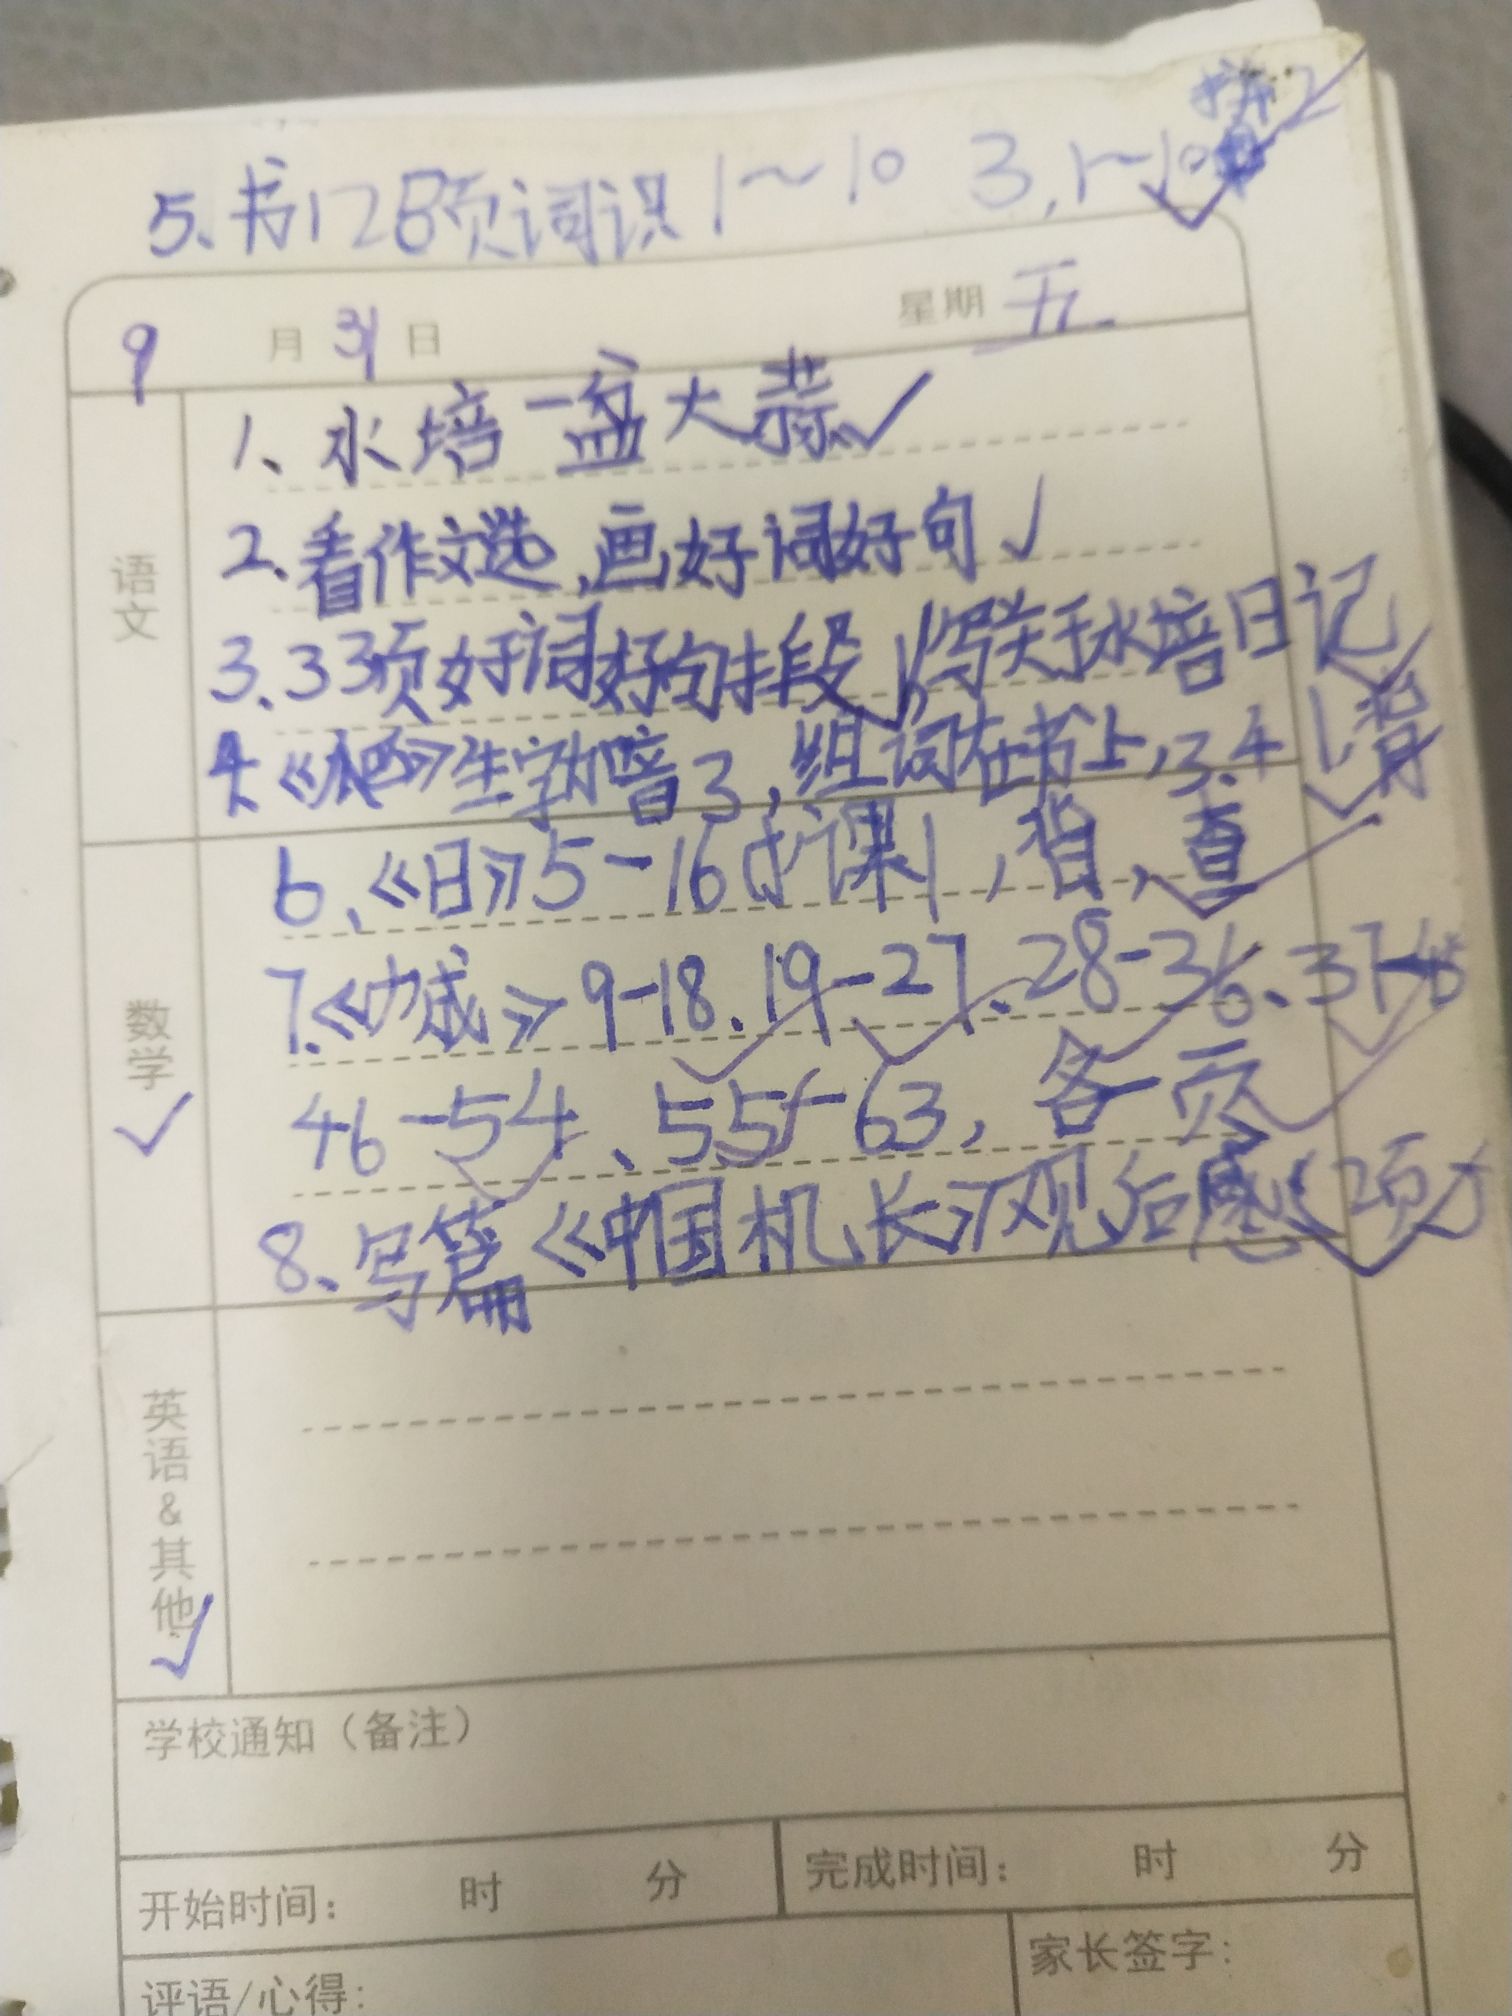 拼2
5、书128页词识1～10 3,1～10
9月31日 星期五
语文
1、水培一盆大蒜✓
2、看作文选,画好词好句✓
3、33页好词好句好段,写关于水培日记
4《》生字加音3,组词在书上,3.4 1背
数学
6、《日》5-16 课1,背,查
7、《成》9-18、19-27、28-36、37-45
46-54、55-63,各一页
8、写篇《中国机长》观后感(2页)
英语&其他
学校通知（备注）
开始时间： 时 分 完成时间： 时 分
评语/心得: 家长签字: